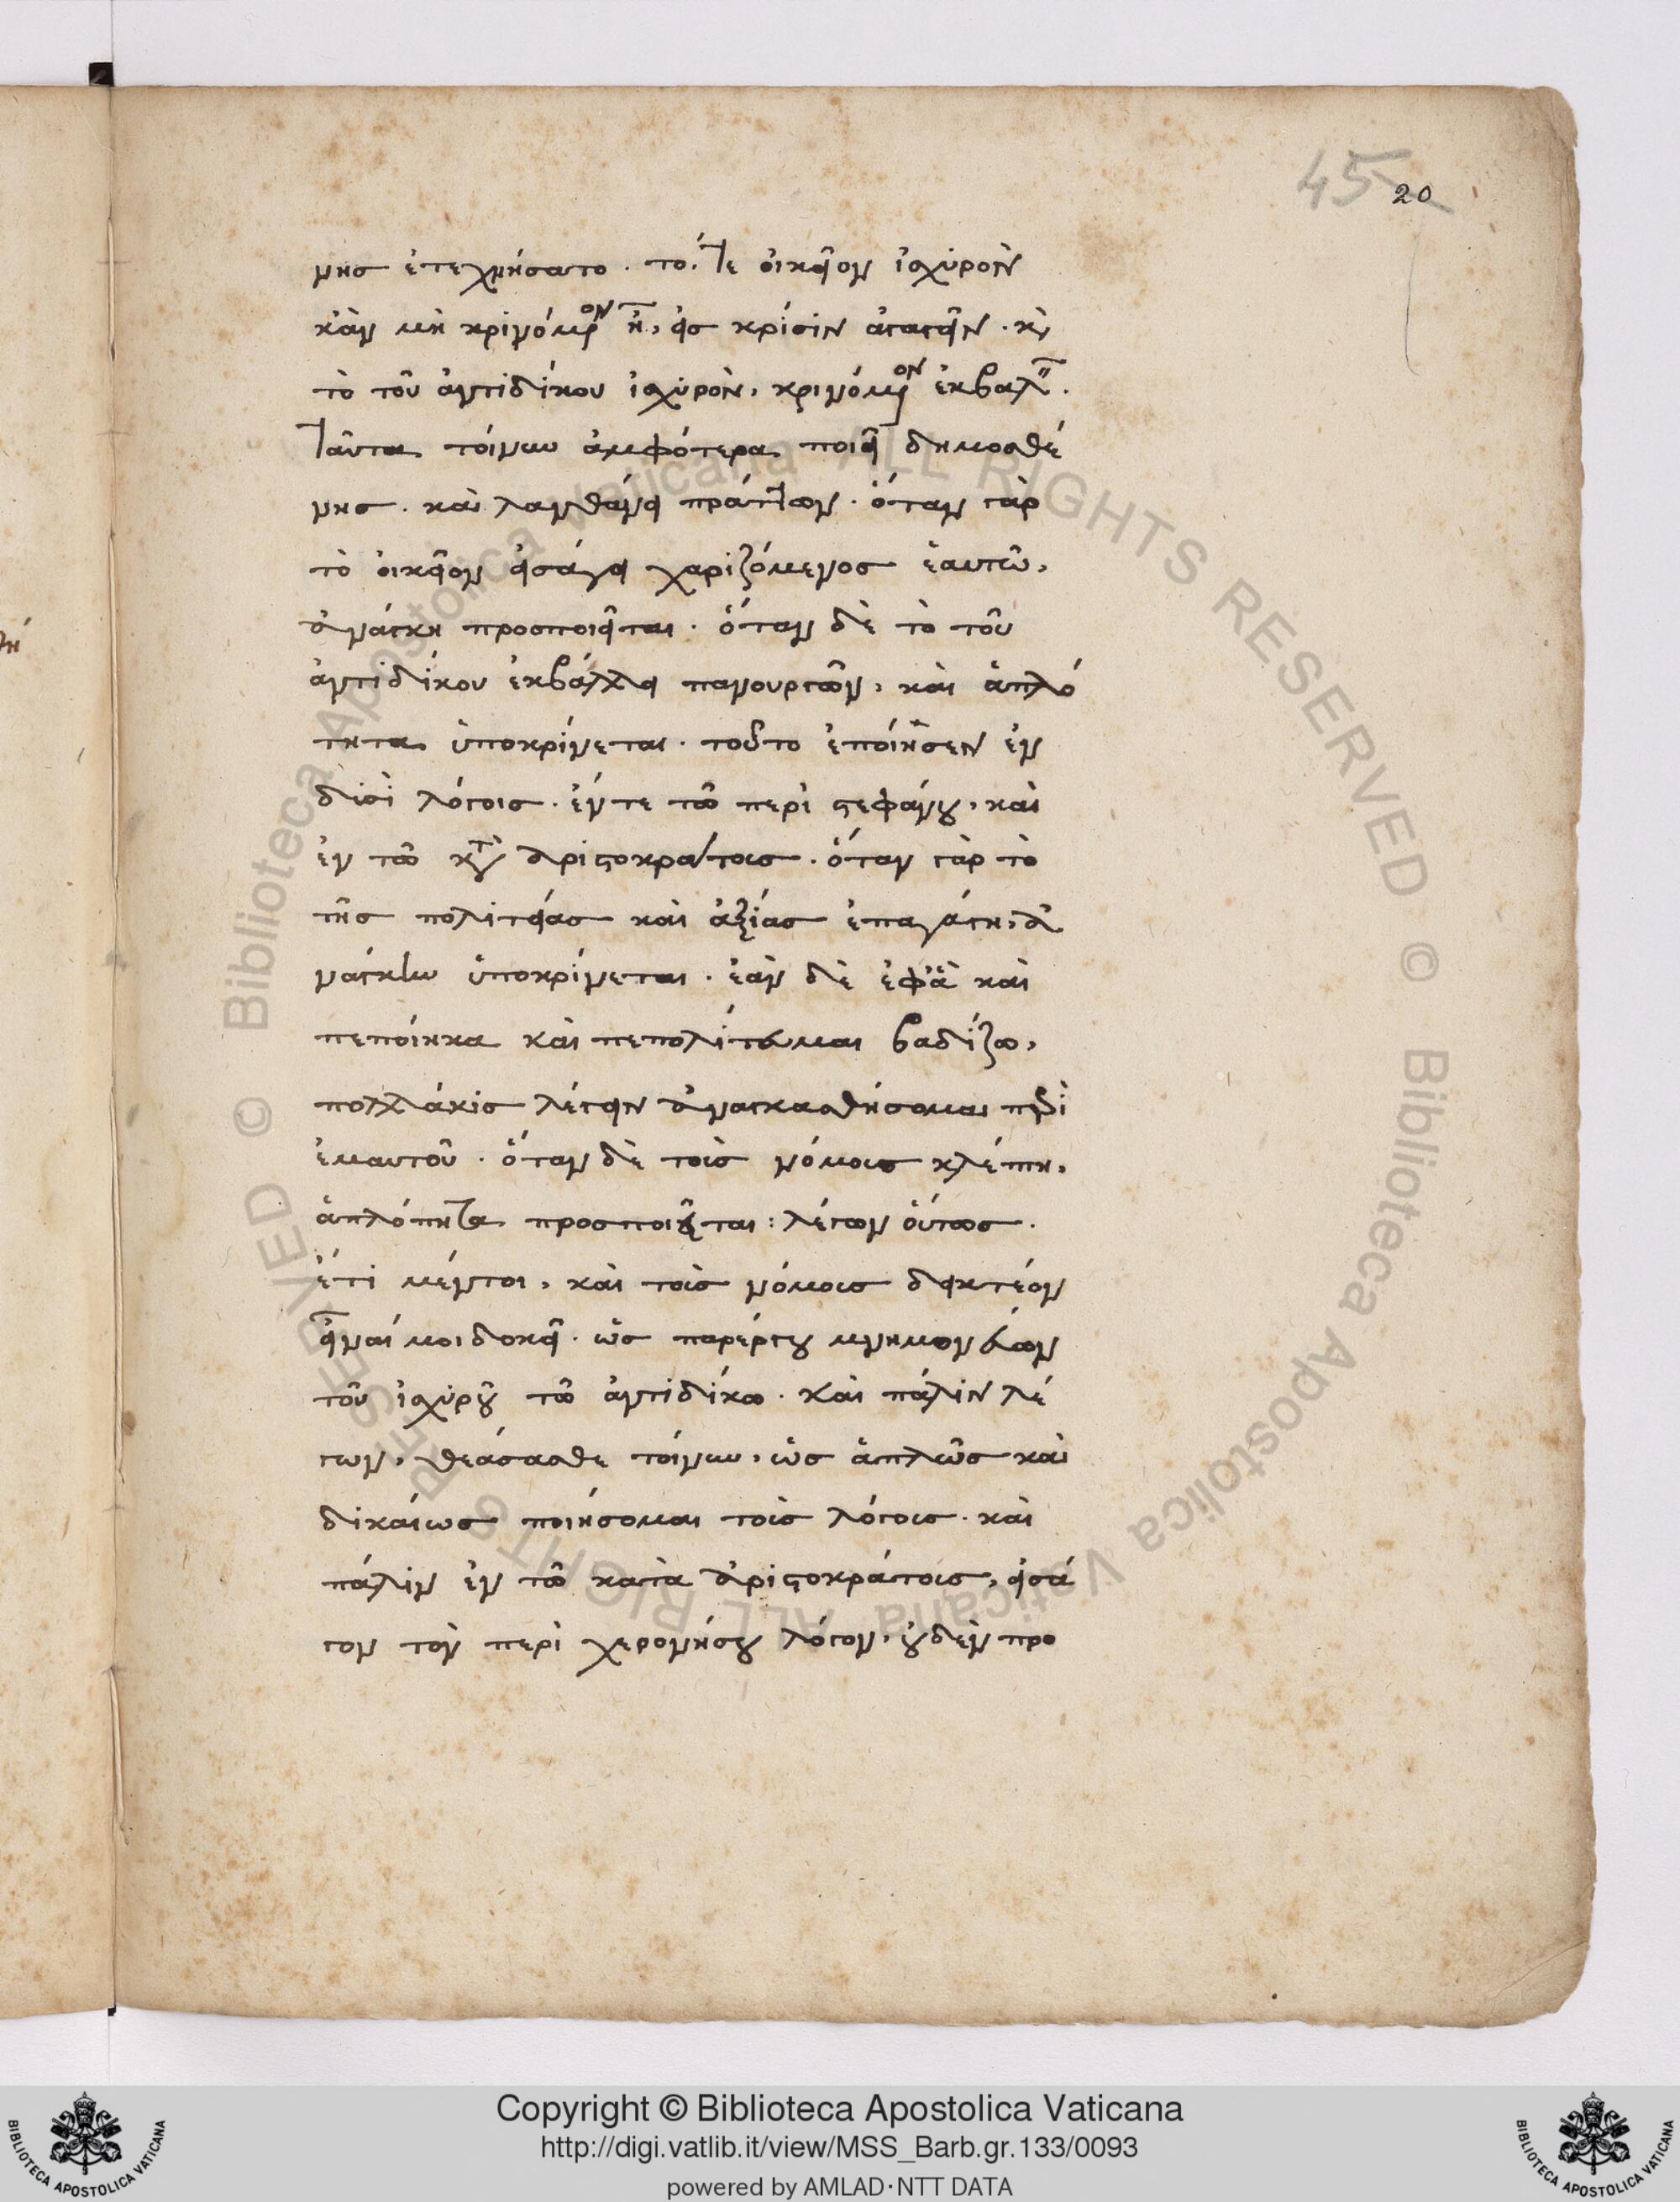 45 20
νης ἐτεχνήσατο. τό, τε οἰκεῖον ἰσχυρὸν
κἂν μὴ κρινόμενον ᾖ, εἰς κρίσιν ἀγαγεῖν. καὶ
τὸ τοῦ ἀντιδίκου ἰσχυρὸν, κρινόμενον ἐκβαλεῖν.
ταῦτα τοίνυν ἀμφότερα ποιεῖ δημοσθέ
νης. καὶ λανθάνει πράττων. ὅταν γὰρ
τὸ οἰκεῖον εἰσάγει χαριζόμενος ἑαυτῶ,
ἀνάγκη προσποιεῖται. ὅταν δὲ τὸ τοῦ
ἀντιδίκου ἐκβάλλει πανουργῶν, καὶ ἁπλό
τητα ὑποκρίνεται. τοῦτο ἐποίησεν ἐν
δυσὶ λόγοις. ἔν τε τῶ περὶ στεφάνου, καὶ
ἐν τῶ κατὰ ἀριστοκράτους. ὅταν γὰρ τὸ
τῆς πολιτείας καὶ ἀξίας ἐπαγάγη, ἀ
νάγκην ὑποκρίνεται. ἐὰν δὲ ἐφ' ἃ καὶ
πεποίηκα καὶ πεπολίτευμαι βαδίζω,
πολλάκις λέγειν ἀναγκασθήσομαι περὶ
ἐμαυτοῦ. ὅταν δὲ τοὺς νόμους κλέπτη,
ἁπλότητα προσποιεῖται: λέγων οὕτως.
ἔτι μέντοι, καὶ τοὺς νόμους δεικτέον
εἶναί μοι δοκεῖ. ὡς παρέργου μνημονεύων
τοῦ ἰσχυροῦ τῶ ἀντιδίκω. καὶ πάλιν λέ
γων, θεάσασθε τοίνυν, ὡς ἁπλῶς καὶ
δικαίως ποιήσομαι τοὺς λόγους. καὶ
πάλιν ἐν τῶ κατὰ ἀριστοκράτους, εἰσά
γων τὸν περὶ χερονήσου λόγον, οὐδὲν προ
Copyright © Biblioteca Apostolica Vaticana
http://digi.vatlib.it/view/MSS_Barb.gr.133/0093
powered by AMLAD·NTT DATA
BIBLIOTECA APOSTOLICA VATICANA
BIBLIOTECA APOSTOLICA VATICANA
© Biblioteca Apostolica Vaticana ALL RIGHTS RESERVED © Biblioteca Apostolica Vaticana ALL RIGHTS RESERVED